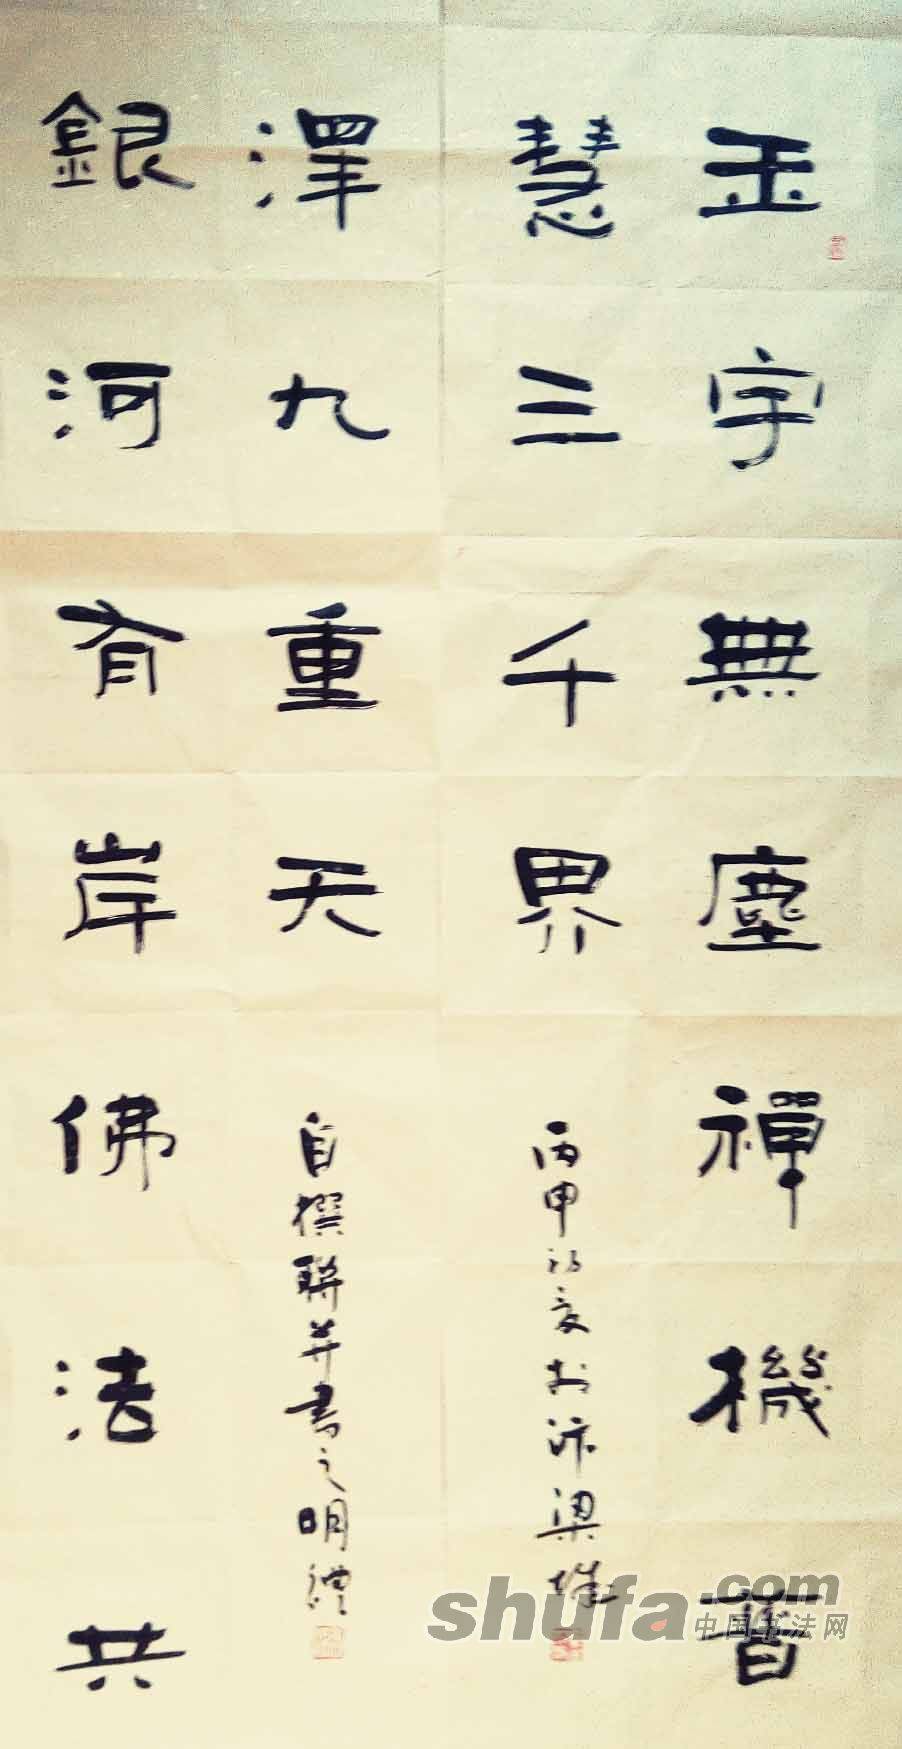 玉宇無塵禪機普
慧三千界
丙申初夏於汴梁城
銀河有岸佛法共
澤九重天
自撰聯并書之明禮
shufa.com
中国书法网